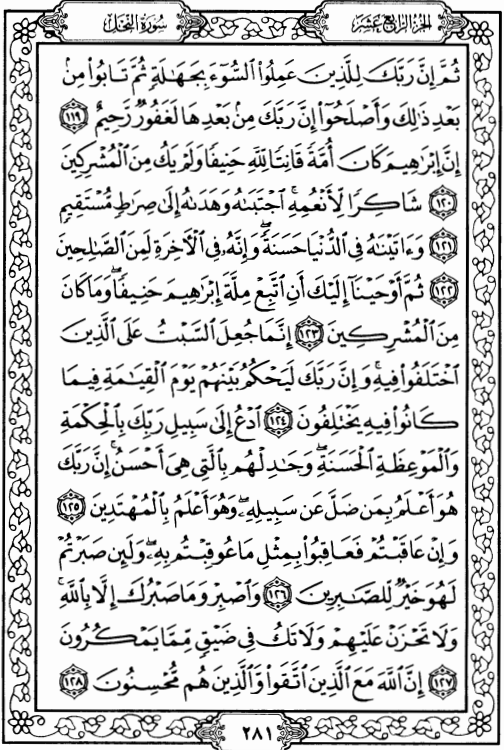 سُورَةُ النَّحْلِ
الجُزْءُ الرَّابِعَ عَشَرَ
ثُمَّ إِنَّ رَبَّكَ لِلَّذِينَ عَمِلُوا۟ ٱلسُّوٓءَ بِجَهَٰلَةٍ ثُمَّ تَابُوا۟ مِنۢ
بَعْدِ ذَٰلِكَ وَأَصْلَحُوٓا۟ إِنَّ رَبَّكَ مِنۢ بَعْدِهَا لَغَفُورٌ رَّحِيمٌ ١١٩
إِنَّ إِبْرَٰهِيمَ كَانَ أُمَّةً قَانِتًا لِّلَّهِ حَنِيفًا وَلَمْ يَكُ مِنَ ٱلْمُشْرِكِينَ
١٢٠ شَاكِرًا لِّأَنْعُمِهِ ۚ ٱجْتَبَىٰهُ وَهَدَىٰهُ إِلَىٰ صِرَٰطٍ مُّسْتَقِيمٍ
١٢١ وَءَاتَيْنَٰهُ فِى ٱلدُّنْيَا حَسَنَةً ۖ وَإِنَّهُۥ فِى ٱلْءَاخِرَةِ لَمِنَ ٱلصَّٰلِحِينَ
١٢٢ ثُمَّ أَوْحَيْنَآ إِلَيْكَ أَنِ ٱتَّبِعْ مِلَّةَ إِبْرَٰهِيمَ حَنِيفًا ۖ وَمَا كَانَ
مِنَ ٱلْمُشْرِكِينَ ١٢٣ إِنَّمَا جُعِلَ ٱلسَّبْتُ عَلَى ٱلَّذِينَ
ٱخْتَلَفُوا۟ فِيهِ ۚ وَإِنَّ رَبَّكَ لَيَحْكُمُ بَيْنَهُمْ يَوْمَ ٱلْقِيَٰمَةِ فِيمَا
كَانُوا۟ فِيهِ يَخْتَلِفُونَ ١٢٤ ٱدْعُ إِلَىٰ سَبِيلِ رَبِّكَ بِٱلْحِكْمَةِ
وَٱلْمَوْعِظَةِ ٱلْحَسَنَةِ ۖ وَجَٰدِلْهُم بِٱلَّتِى هِىَ أَحْسَنُ ۚ إِنَّ رَبَّكَ
هُوَ أَعْلَمُ بِمَن ضَلَّ عَن سَبِيلِهِۦ ۖ وَهُوَ أَعْلَمُ بِٱلْمُهْتَدِينَ ١٢٥
وَإِنْ عَاقَبْتُمْ فَعَاقِبُوا۟ بِمِثْلِ مَا عُوقِبْتُم بِهِۦ ۖ وَلَئِن صَبَرْتُمْ
لَهُوَ خَيْرٌ لِّلصَّٰبِرِينَ ١٢٦ وَٱصْبِرْ وَمَا صَبْرُكَ إِلَّا بِٱللَّهِ ۚ
وَلَا تَحْزَنْ عَلَيْهِمْ وَلَا تَكُ فِى ضَيْقٍ مِّمَّا يَمْكُرُونَ
١٢٧ إِنَّ ٱللَّهَ مَعَ ٱلَّذِينَ ٱتَّقَوا۟ وَّٱلَّذِينَ هُم مُّحْسِنُونَ ١٢٨
٢٨١